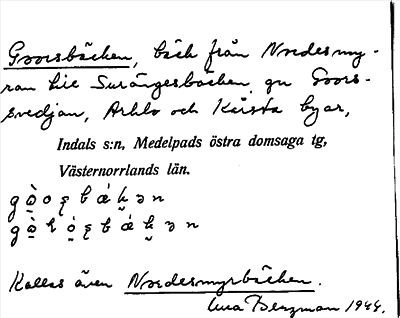 Goorsbäcken, bäck från Nordesmy-
ran till Surängesbäcken gm Goors-
svedjan, Arklo och Kärsta byar,
Indals s:n, Medelpads östra domsaga tg,
Västernorrlands län.
Kallas även Nordesmyrbäcken.
Bergman 1944.